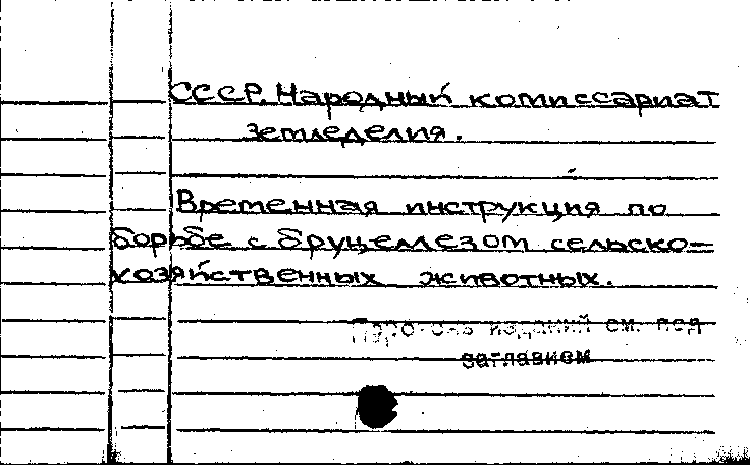 СССР. Народный комиссариат
земледелия.
Временная инструкция по
борьбе с бруцеллезом сельско-
хозяйственных животных.
Перечень изданий см. под
заглавием